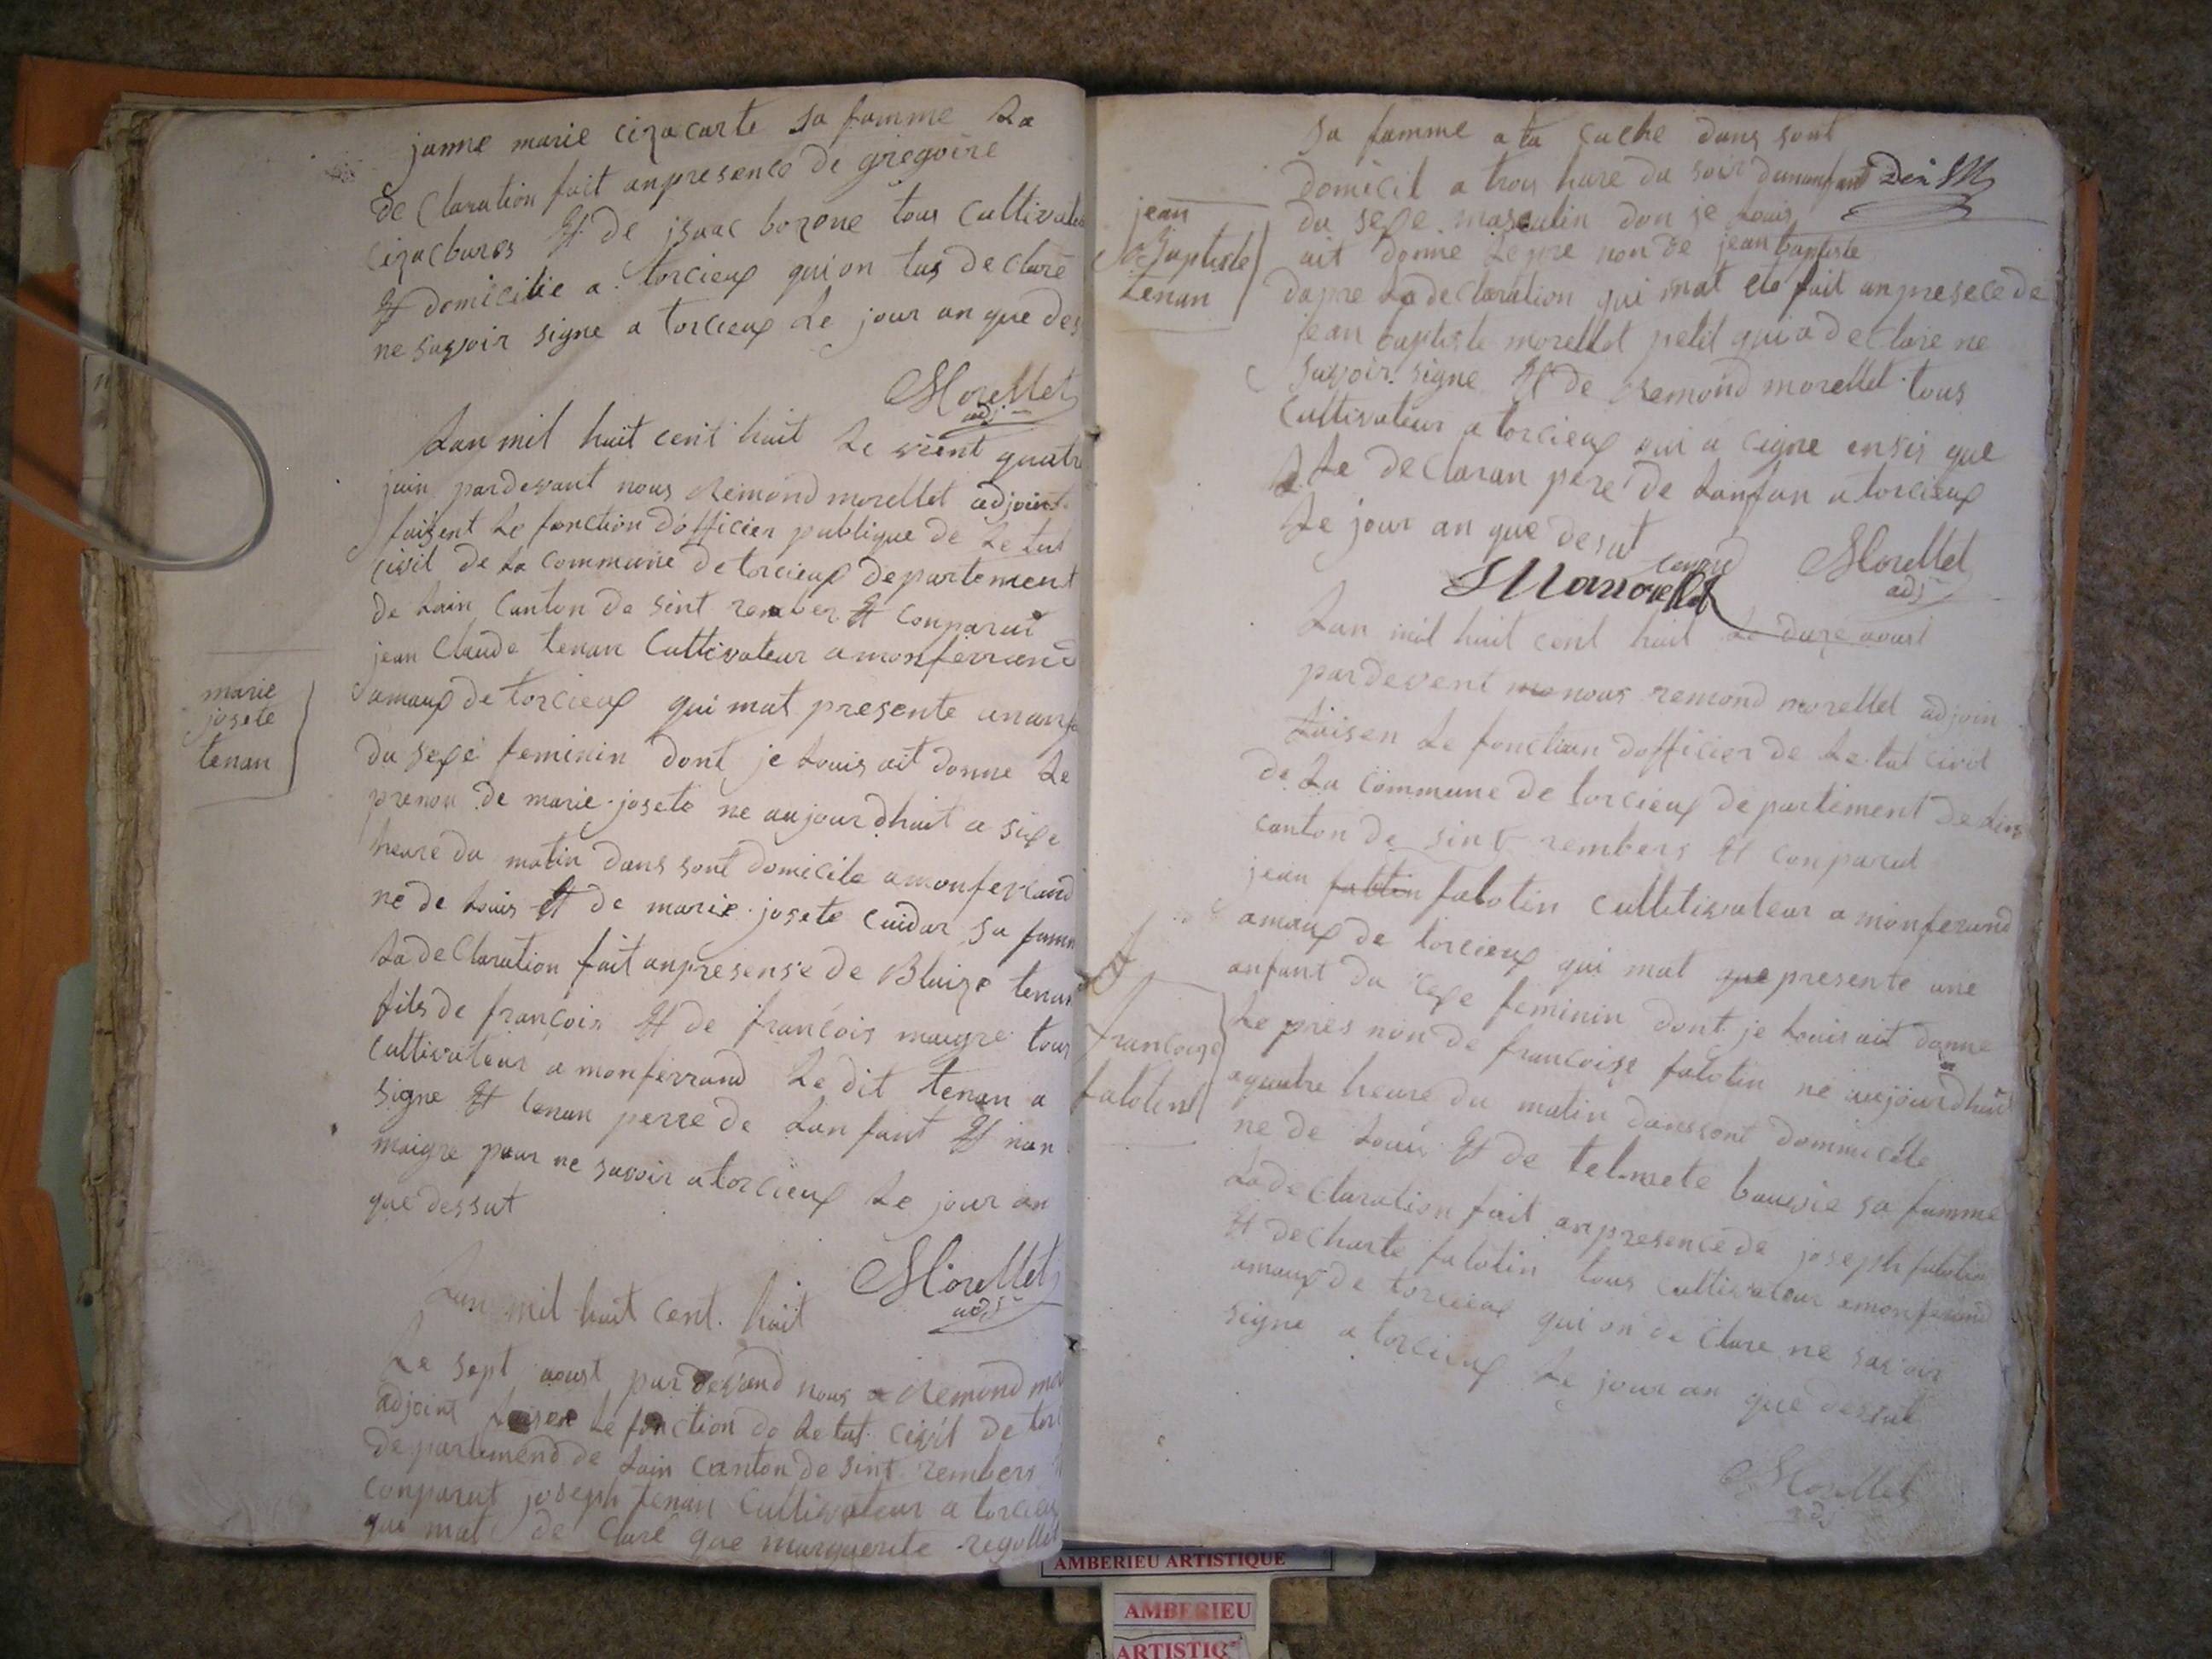 janne marie cizacarte sa famme La
de Claration fait anpresence de gregoire
cizacbures Et de jsaac bozone tous Cultivateu
Et domicilie a torcieux qui on tus declare
ne savoir signe a torcieux Le jour an que des
Morellet
adj
Lan mil huit cent huit Le vient quatre
juin pardevant nous Remond morellet adjoint
faisent Le fonction d'officier publique de Le tat
civil de La commune de torcieux departement
de Lain Canton de sint rember Et conparut
jean Claude tenan Cultivateur a monferrand
amaux de torcieux qui mat presente unanfa
du sexe feminin dont je Louis ait donne Le
prenon de marie josete ne aujourdhuit a sixe
heure du matin dans sont domicile a monferrand
ne de Louis Et de marie josete cuidar sa famm
La de Claration fait anpresense de Blaize tenan
fils de françois Et de françois maigre tous
Cultivateur a monferrand Le dit tenan a
signe Et tenan perre de Lanfant Et non
maigre pour ne savoir a torcieux Le jour an
que dessut
Morellet
adj
marie
josete
tenan
Lan mil huit cent huit
Le sept aoust pardevand nous Remond mor
adjoint faisen Le fonction de Letat civil de torc
departemend de Lain Canton de sint rembers
conparut joseph tenan Cultivateur a torcieux
qui mat de Claré que marguerite regollet
sa famme a ta cuche dans sont
domicil a trois hure du soir dunanfant
du sexe masculin don je Louis
ait donne Le pre non de jean baptiste
dapre La declaration qui mat ete fait anpresece de
jean baptiste morellet petit qui a declare ne
savoir signe Et de remond morellet tous
Cultivateur a torcieux qui a cigne ensis que
Le declaran pere de Lanfan a torcieux
Le jour an que desut
Morellet
adj
jean
Baptiste
tenan
Lan mil huit cent huit Le duze aoust
pardevent nous remond morellet adjoin
faisen Le fonction dofficier de Le tat civil
de La commune de torcieux departement de Lin
canton de sint rembers Et conparut
jean falotin falotin Cultitivateur a monferand
amaux de torcieux qui mat que presente une
anfant du cexe feminin dont je Louis ait donne
Le pres non de françoise falotin ne aujourdhuit
a quatre heure du matin dans sont dommicile
ne de Louis Et de tel mete bouvie sa famme
La de Claration fait anpresence de joseph falotin
Et decharle falotin tous cultivateur a monferand
amaux de torcieux qui on de Clare ne savoir
signe a torcieux Le jour an que dessut
Morellet
adj
francoise
falotin
AMBERIEU ARTISTIQUE
AMBERIEU
ARTISTIQ